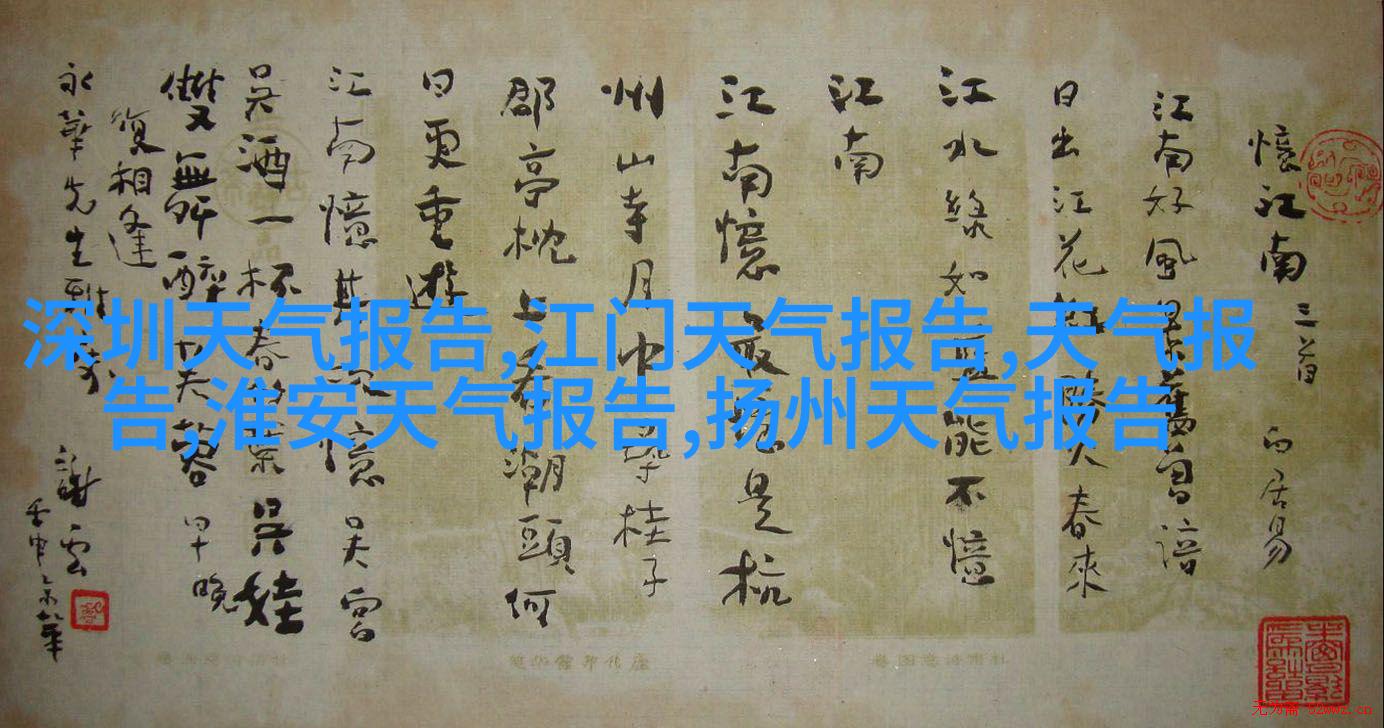 深圳天气报告,江门天气报告,天气报
告,淮安天气报告,扬州天气报告
憶江南 三首 白居易
江南好風景舊曾諳
日出江花紅勝火春來
江水綠如藍能不憶
江南
江南憶最憶是杭
州山寺月中尋桂子
郡亭枕上看潮頭何
日更重遊
江南憶其次憶吳宮
吳酒一杯春竹葉吳娃
雙舞醉芙蓉早晚
復相逢
永華先生雅
謝雲
壬申京華
无为斋